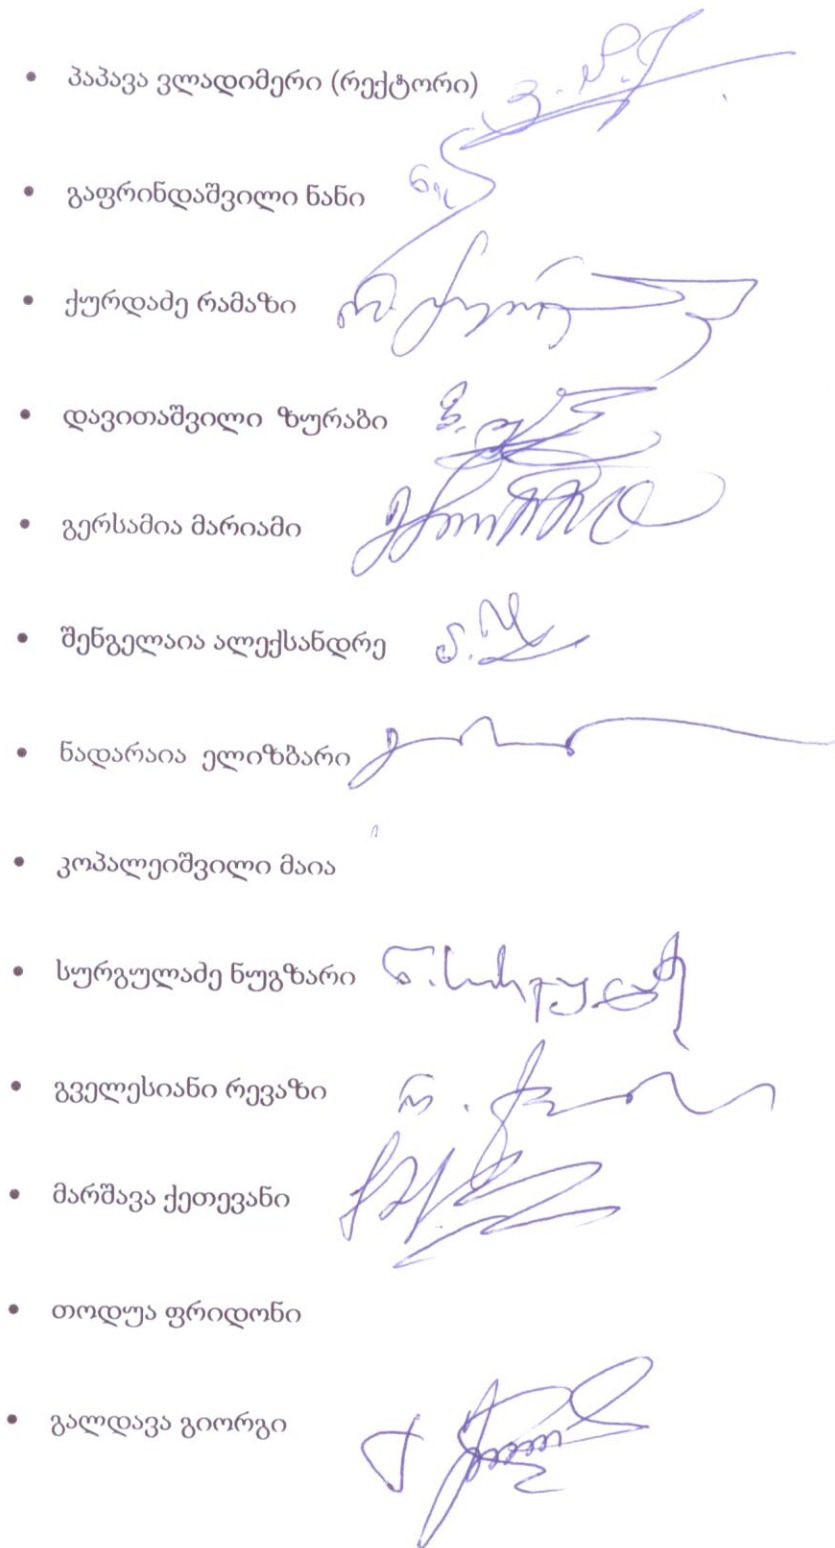 • პაპავა ვლადიმერი (რექტორი)
• გაფრინდაშვილი ნანი
• ქურდაძე რამაზი
• დავითაშვილი ზურაბი
• გერსამია მარიამი
• შენგელაია ალექსანდრე
• ნადარაია ელიზბარი
• კოპალეიშვილი მაია
• სურგულაძე ნუგზარი
• გველესიანი რევაზი
• მარშავა ქეთევანი
• თოდუა ფრიდონი
• გალდავა გიორგი